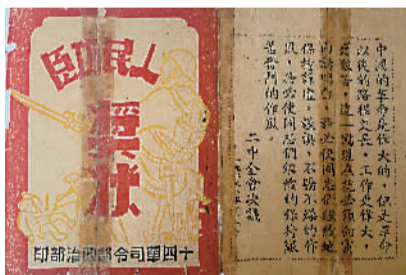 人民功臣
獎狀
十四軍司令部政治部印
中國的革命是偉大的，但是革命
以後的路程更長，工作更偉大，
更艱苦，這一點現在就必須向黨
內講明白，務必使同志們繼續地
保持謙虛，謹慎，不驕不躁的作
風，務必使同志們繼續的保持艱
苦奮鬥的作風。
二中全會決議